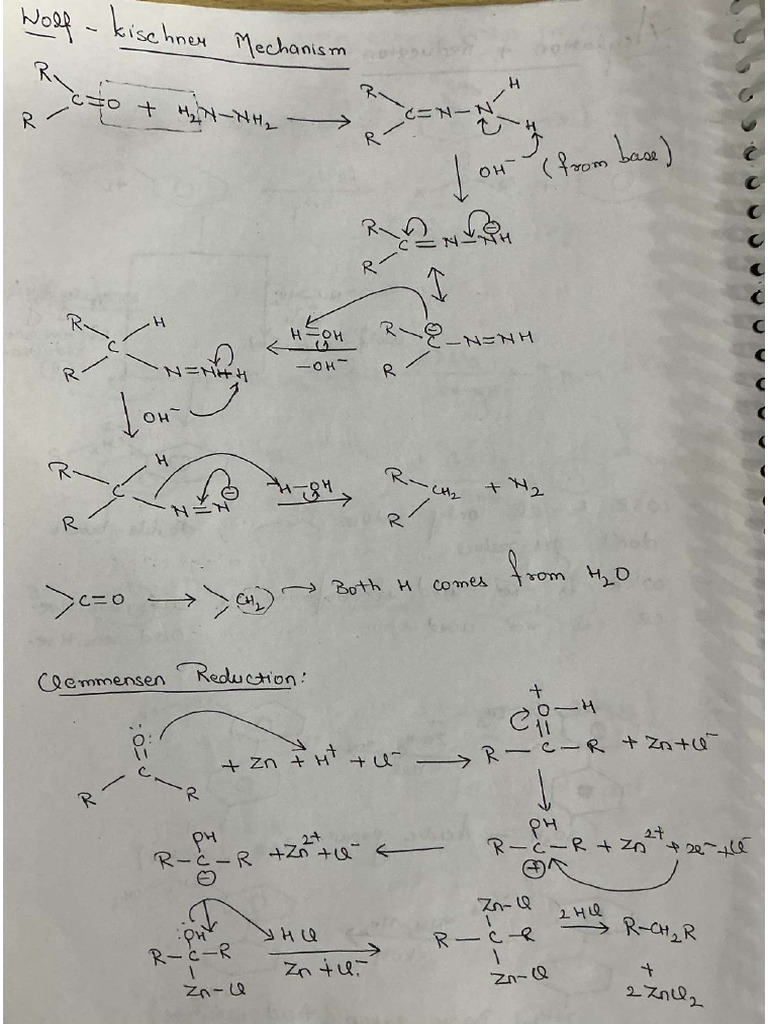 Wolf - Kischner Mechanism
R R C=O + H2N-NH2 → R R C=N-N H H
OH⁻ (from base)
R R C=N-N̄H
R R C H N=N-H ← H-OH -OH⁻ R R C⊖-N=NH
OH⁻
R R C H N=N⊖ H-OH → R R CH2 + N2
>C=O → >CH2 → Both H comes from H2O
Clemmensen Reduction:
R C=O R + Zn + H⁺ + Cl⁻ → R-C-R O-H + + Zn + Cl⁻
R-C-R OH ⊖ + Zn²⁺ + Cl⁻ ← R-C-R OH ⊕ + Zn²⁺ + 2e⁻ + Cl⁻
R-C-R OH Zn-Cl HCl Zn + Cl⁻ → R-C-R Zn-Cl Zn-Cl 2HCl → R-CH2R
+
2ZnCl2